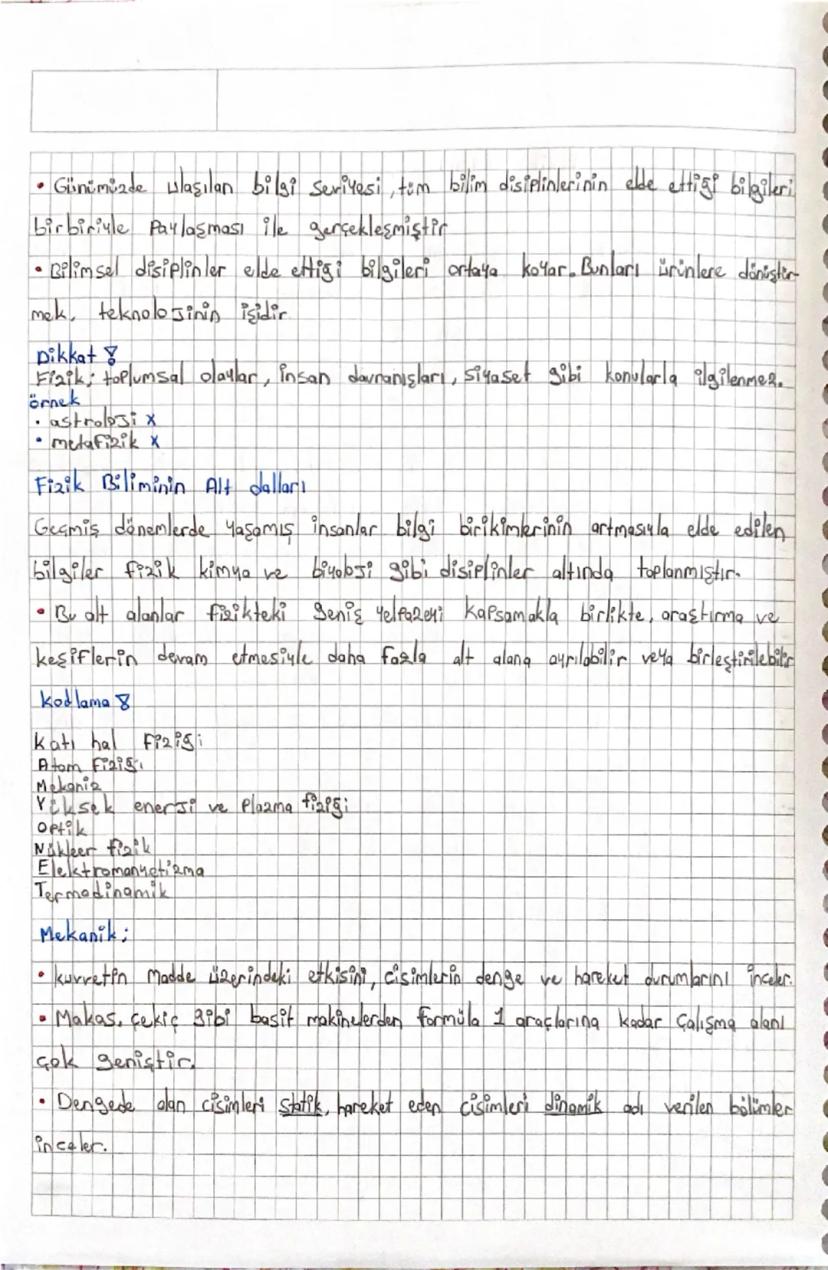 • Günümüzde ulaşılan bilgi seviyesi, tüm bilim disiplinlerinin elde ettiği bilgileri
birbiriyle Paylaşması ile gerçekleşmiştir
• Bilimsel disiplinler elde ettiği bilgileri ortaya koyar. Bunları ürünlere dönüştür-
mek, teknolojinin işidir
Dikkat :
Fizik; toplumsal olaylar, insan davranışları, siyaset gibi konularla ilgilenmez.
örnek
• astroloji x
• metafizik x
Fizik Biliminin Alt dalları
Geçmiş dönemlerde yaşamış insanlar bilgi birikimlerinin artmasıyla elde edilen
bilgiler fizik kimya ve biyoloji gibi disiplinler altında toplanmıştır.
• Bu alt alanlar fizikteki geniş yelpazeyi kapsamakla birlikte, araştırma ve
keşiflerin devam etmesiyle daha fazla alt alana ayrılabilir veya birleştirilebilir
Kodlama :
Katı hal Fiziği
Atom Fiziği
Mekaniz
Yüksek enerji ve Plazma fiziği
Optik
Nükleer fizik
Elektromanyetizma
Termodinamik
Mekanik;
• kuvvetin madde üzerindeki etkisini, cisimlerin denge ve hareket durumlarını inceler.
• Makas, çekiç gibi basit makinelerden formula 1 araçlarına kadar çalışma alanı
çok geniştir.
• Dengede olan cisimleri statik, hareket eden cisimleri dinamik adı verilen bölümler
inceler.